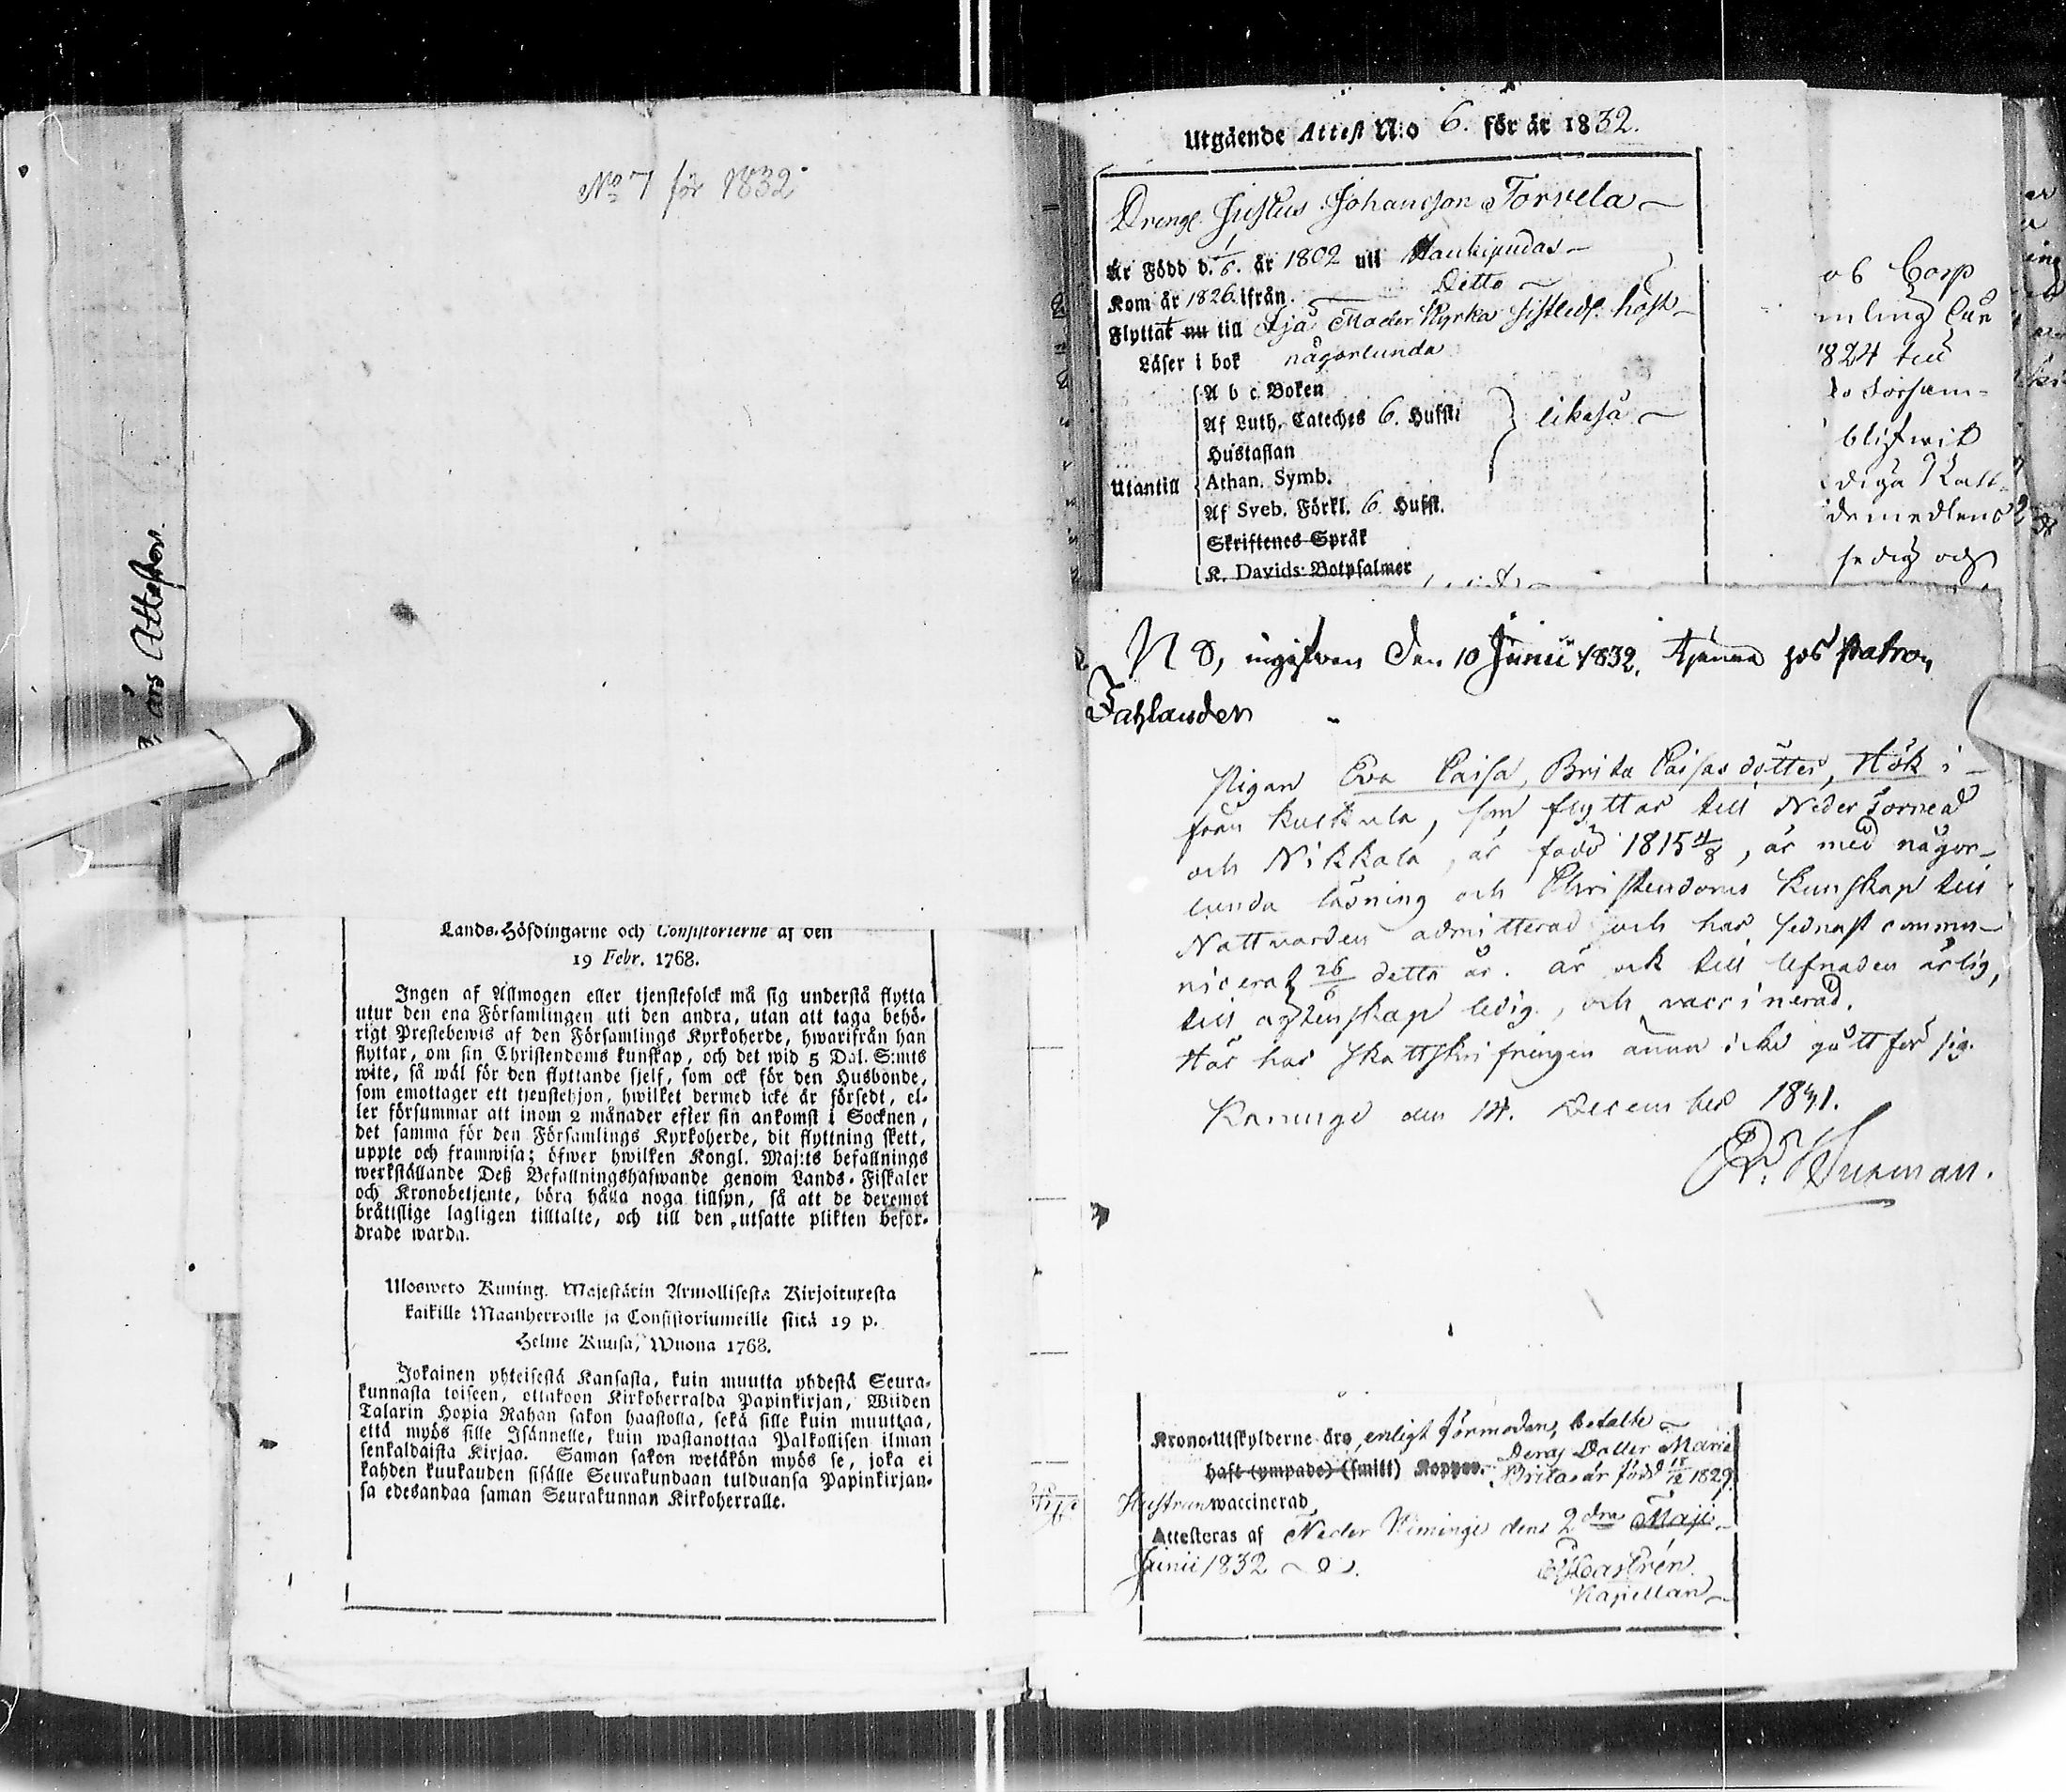 års Attester.
No 7 för 1832
Lands-Höfdingarne och Consistorierne af den
19 Febr. 1768.
Ingen af Allmogen eller tjenstefolck må sig understå flytta
utur den ena Församlingen uti den andra, utan att taga behö-
rigt Prestebewis af den Församlings Kyrkoherde, hwarifrån han
flyttar, om sin Christendoms kunskap, och det wid 5 Dal. S:mts
wite, så wäl för den flyttande sjelf, som ock för den Husbonde,
som emottager ett tjenstehjon, hwilket dermed icke är försedt, el-
ler försummar att inom 2 månader efter sin ankomst i Socknen,
det samma för den Församlings Kyrkoherde, dit flyttning skett,
uppte och framwisa; öfwer hwilken Kongl. Maj:ts befallnings
werkställande Deß Befallningshafwande genom Lands-Fiskaler
och Kronobetjente, böra hålla noga tillsyn, så att de deremot
bråttslige lagligen tilltalte, och till den utsatte plikten befor-
drade warda.
Ulosweto Kuning. Majestätin Armollisesta Kirjoituxesta
kaikille Maanherroille ja Consistoriumeille siitä 19 p.
Helme Kuusa, Wuona 1768.
Jokainen yhteisestä Kansasta, kuin muutta yhdestä Seura-
kunnasta toiseen, ottakoon Kirkoherralda Papinkirjan, Wiiden
Talarin Hopia Rahan sakon haastolla, sekä sille kuin muuttaa,
että myös sille Isännelle, kuin wastanottaa Palkollisen ilman
senkaldaista Kirjaa. Saman sakon wetäkön myös se, joka ei
kahden kuukauden sisälle Seurakundaan tulduansa Papinkirjan-
sa edesandaa saman Seurakunnan Kirkoherralle.
Utgående Attest N:o 6. för år 1832.
Dreng. Justus Johansson Torvela
Är Född d. 1/6. år 1802 uti Haukipudas
Kom år 1826 ifrån Ditto
Flyttat nu till Ijå Moder Kyrka sistledf. höst
Läser i bok någorlunda
A b c Boken
Af Luth. Cateches 6. Hufst. likaså
Hustaflan
Utantill Athan. Symb.
Af Sveb. Förkl. 6 Hufst.
Skriftenes Språk
K. Davids Botpsalmer
os Corp
mling
1824
Församl-
blifwit
diga
demedlens
fedig och
N 8, ingifven den 10 Junii 1832. tjenna hos Patron
Fahlander
Pigan Eva Caisa, Brita Caisas dotter, Hök i-
från Kuckula, som flyttar till Neder Torneå
och Nikkala, är född 1815 4/8, är med någor-
lunda läsning och Christendoms Kunskap till
Nattvarden admitterad och har sednast commu-
nicerat 26/6 detta år. är ock till lefnaden ärlig,
till ägtenskap ledig, och vaccinerad.
Här har skattskrifningen ännu icke gått för sig.
Karunge den 14. December 1831.
Krono-Utskylderne äro, enligt förmodan, betalte
haft (ympade) (smitt) Koppor. Deras Dotter Maria
Brita är född 18/12 1829.
Hustrun waccinerad
Attesteras af Neder Kiminge den 2dra Maji
Junii 1832
Castrén
Kapellan